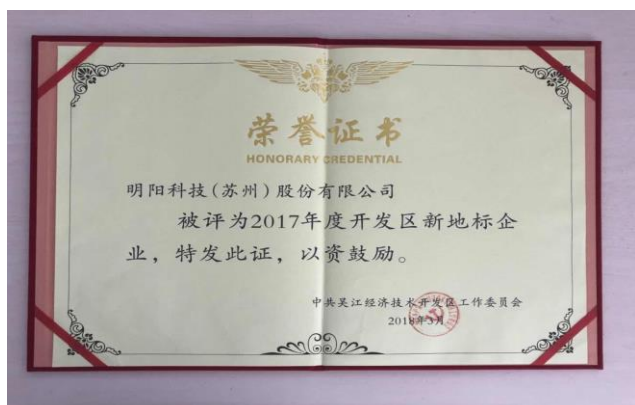 荣誉证书
HONORARY CREDENTIAL
明阳科技(苏州)股份有限公司
被评为2017年度开发区新地标企
业，特发此证，以资鼓励。
中共吴江经济技术开发区工作委员会
2018年3月